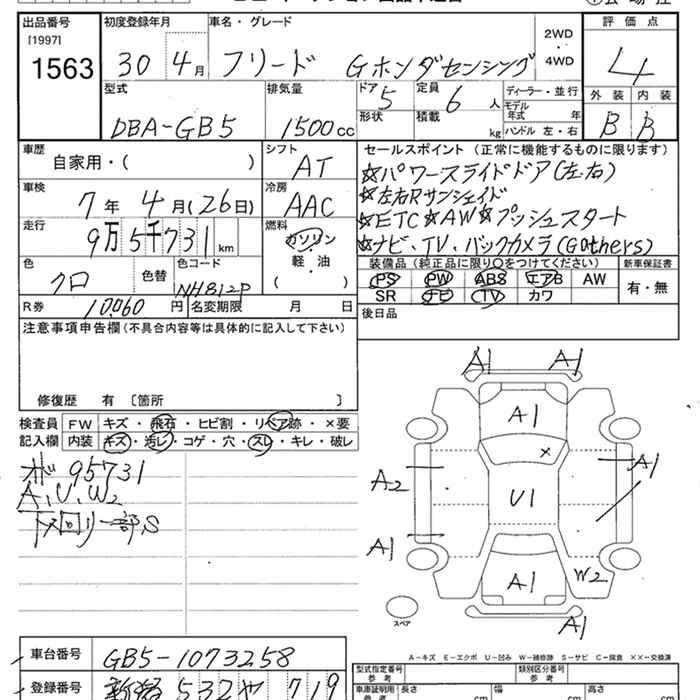 出品番号 初度登録年月 車名・グレード 2WD・4WD 評価点
[1997]
1563 30年4月 フリード Gホンダセンシング 4
型式 排気量 ドア 定員 ディーラー・並行 外装 内装
DBA-GB5 1500cc 5 6人 モデル年式 年 B B
形状 積載 kg ハンドル 左・右
車歴 シフト セールスポイント (正常に機能するものに限ります)
自家用・( ) AT ☆パワースライドドア(左右)
車検 冷房 ☆左右Rサンシェイド
7年4月(26日) AAC ☆ETC☆AW☆プッシュスタート
走行 燃料 ☆ナビ、TV、バックカメラ(Gathers)
9万5千731km ガソリン・軽油・( )
色 色替 色コード 装備品(純正品に限り○をつけてください) 新車保証書
クロ NH812P PS PW ABS エアB AW 有・無
SR ナビ TV カワ
R券 10,060円 名変期限 月 日 後日品
注意事項申告欄(不具合内容等は具体的に記入して下さい)
修復歴 有 [箇所 ]
検査員 FW キズ・飛石・ヒビ割・リペア跡・×要
記入欄 内装 キズ・汚レ・コゲ・穴・スレ・キレ・破レ
95731
A、U、W2
下回リ一部S
A1 A1
A1
×
A2 U1 A1
A1
A1 W2
A1
スペア
A-キズ E-エクボ U-凹み W-補修跡 S-サビ C-腐食 ××-交換済
車台番号 GB5-1073258 型式指定番号 類別区分番号
参考 参考
登録番号 532 719 車庫証明用 長さ 幅 高さ
参考 cm cm cm